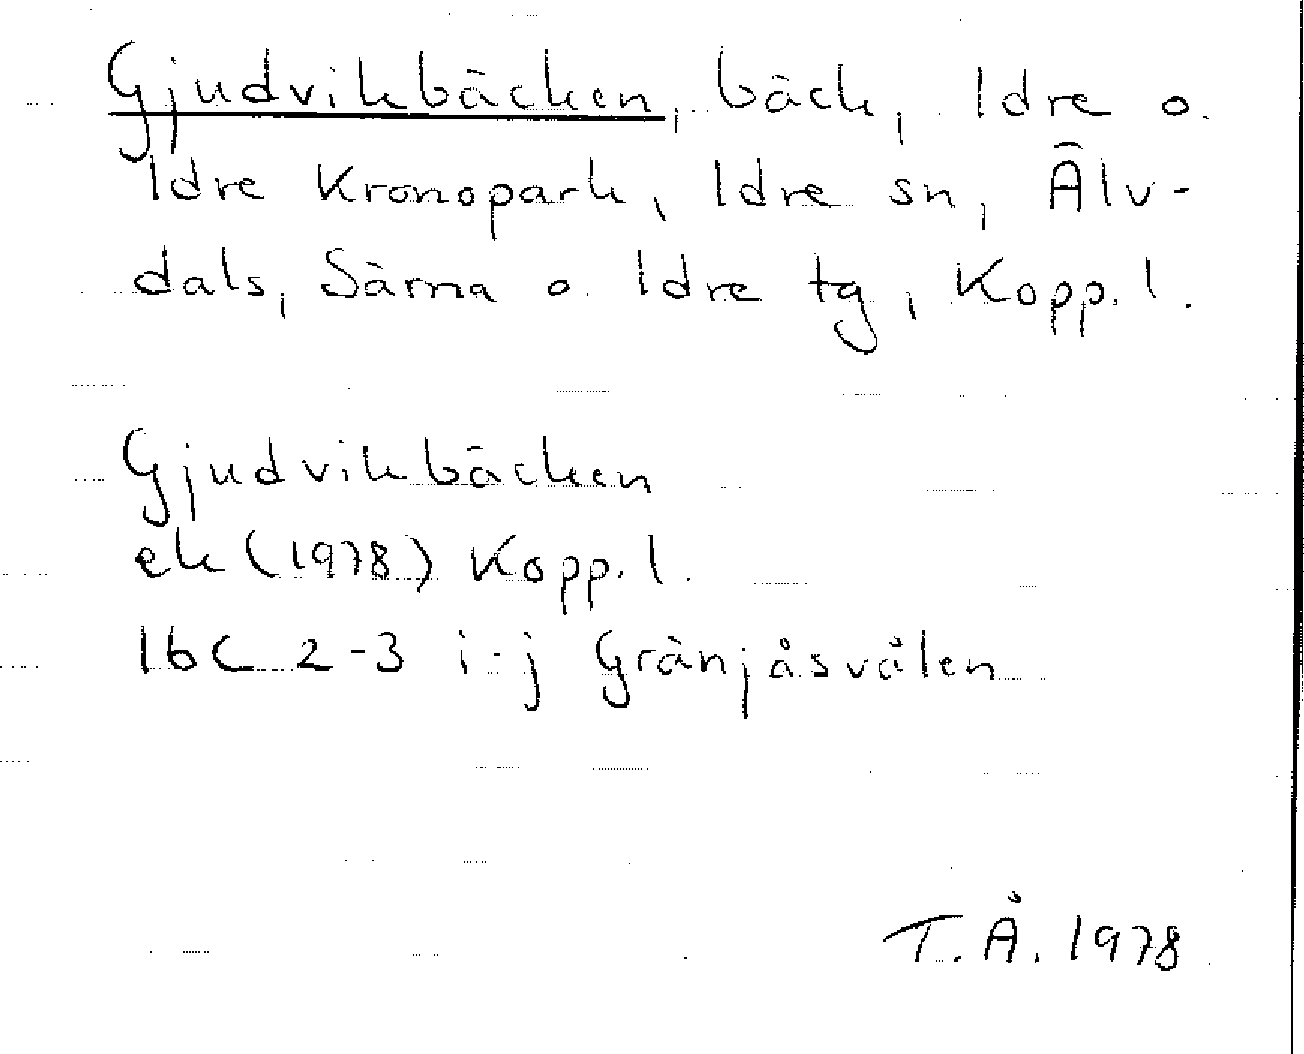 Gjudvikbäcken, bäck, Idre o.
Idre Kronopark, Idre sn, Älv-
dals, Särna o. Idre tg, Kopp. l.
Gjudvikbäcken
ek (1978) Kopp. l.
16C 2-3 i-j Gränjåsvålen
T.Å. 1978